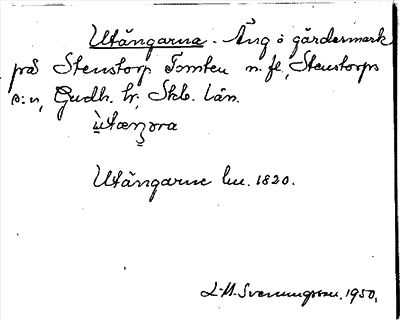 Utängarna. Äng o gärdesmark
på Stenstorp Tomten m. fl., Stenstorps
s:n, Gudh. hr, Skb. län.
Utängarne lm. 1820.
L-M. Svenungsson. 1950.